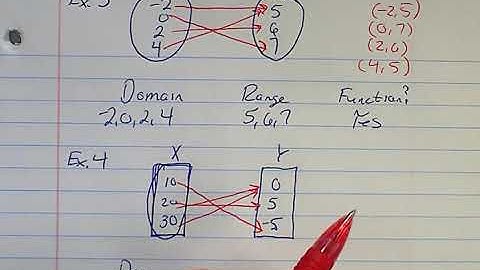 Ex. 3
-2 5 (-2,5)
0 6 (0,7)
2 7 (2,6)
4 (4,5)
Domain Range Function?
-2,0,2,4 5,6,7 Yes
Ex. 4 X Y
10 0
20 5
30 -5